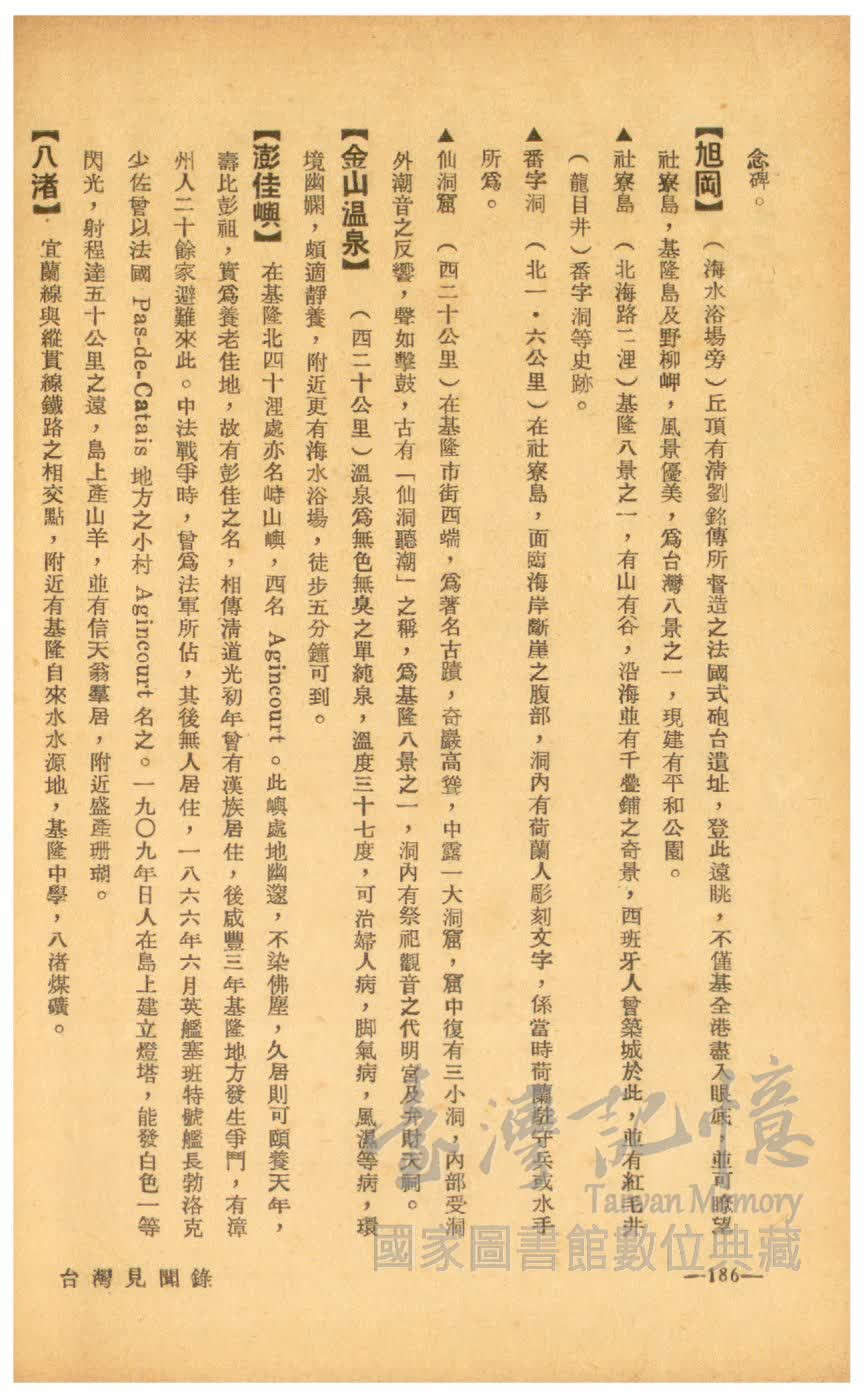 念碑。
【旭岡】 （海水浴場旁）丘頂有清劉銘傳所督造之法國式砲台遺址，登此遠眺，不僅基全港盡入眼底，並可瞭望
社寮島，基隆島及野柳岬，風景優美，為台灣八景之一，現建有平和公園。
▲社寮島 （北海路二浬）基隆八景之一，有山有谷，沿海並有千疊鋪之奇景，西班牙人曾築城於此，並有紅毛井
（龍目井）番字洞等史跡。
▲番字洞 （北一・六公里）在社寮島，面臨海岸斷崖之腹部，洞內有荷蘭人彫刻文字，係當時荷蘭駐守兵或水手
所為。
▲仙洞窟 （西二十公里）在基隆市街西端，為著名古蹟，奇巖高聳，中露一大洞窟，窟中復有三小洞，內部受洞
外潮音之反響，聲如擊鼓，古有「仙洞聽潮」之稱，為基隆八景之一，洞內有祭祀觀音之代明宮及弁財天祠。
【金山温泉】 （西二十公里）溫泉為無色無臭之單純泉，溫度三十七度，可治婦人病，脚氣病，風濕等病，環
境幽嫻，頗適靜養，附近更有海水浴場，徒步五分鐘可到。
【澎佳嶼】 在基隆北四十浬處亦名峙山嶼，西名 Agincourt。此嶼處地幽邃，不染佛塵，久居則可頤養天年，
壽比彭祖，實為養老佳地，故有彭佳之名，相傳清道光初年曾有漢族居住，後咸豐三年基隆地方發生爭鬥，有漳
州人二十餘家避難來此。中法戰爭時，曾為法軍所佔，其後無人居住，一八六六年六月英艦塞班特號艦長勃洛克
少佐曾以法國 Pas-de-Catais 地方之小村 Agincourt 名之。一九〇九年日人在島上建立燈塔，能發白色一等
閃光，射程達五十公里之遠，島上產山羊，並有信天翁羣居，附近盛產珊瑚。
【八渚】 宜蘭線與縱貫線鐵路之相交點，附近有基隆自來水水源地，基隆中學，八渚煤礦。
—186—
台灣見聞錄
臺灣記憶
Taiwan Memory
國家圖書館數位典藏